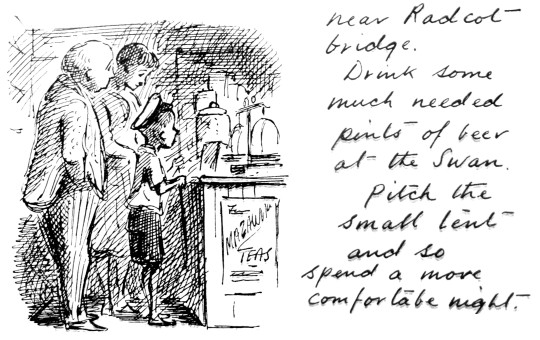 near Radcot
bridge.
Drink some
much needed
pints of beer
at the Swan.
Pitch the
small tent
and so
spend a more
comfortabe night.
MAZAWATTEE
TEAS